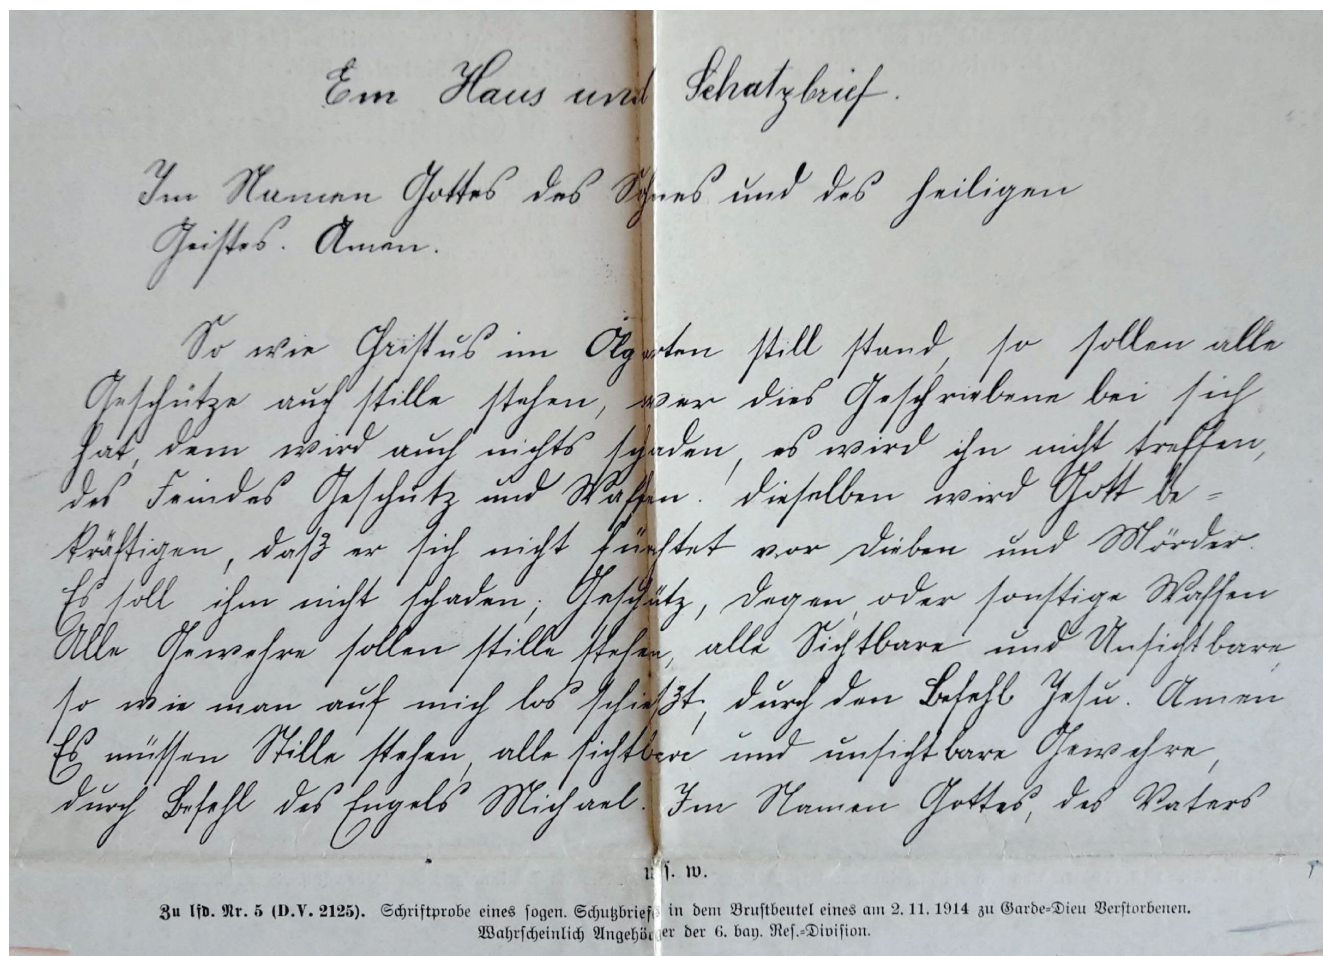 Ein Haus und Schatzbrief.
Im Namen Gottes des Sohnes und des heiligen
Geistes. Amen.
So wie Christus im Ölgarten still stand, so sollen alle
Geschütze auch stille stehen, wer dies Geschriebene bei sich
hat, dem wird auch nichts schaden, es wird ihn nicht treffen,
des Feindes Geschütz und Waffen. Dieselben wird Gott be=
kräftigen, daß er sich nicht fürchtet vor Dieben und Mörder.
Es soll ihm nicht schaden, Geschütz, Degen oder sonstige Waffen
Alle Gewehre sollen stille stehen, alle Sichtbare und Unsichtbare,
so wie man auf mich los schießt, durch den Befehl Jesu. Amen
Es müssen Stille stehen, alle sichtbare und unsichtbare Gewehre,
durch Befehl des Engels Michael. Im Namen Gottes, des Vaters
u. s. w.
Zu lfd. Nr. 5 (D.V. 2125). Schriftprobe eines sogen. Schutzbriefs in dem Brustbeutel eines am 2. 11. 1914 zu Garde=Dieu Verstorbenen.
Wahrscheinlich Angehöriger der 6. bay. Res.=Division.